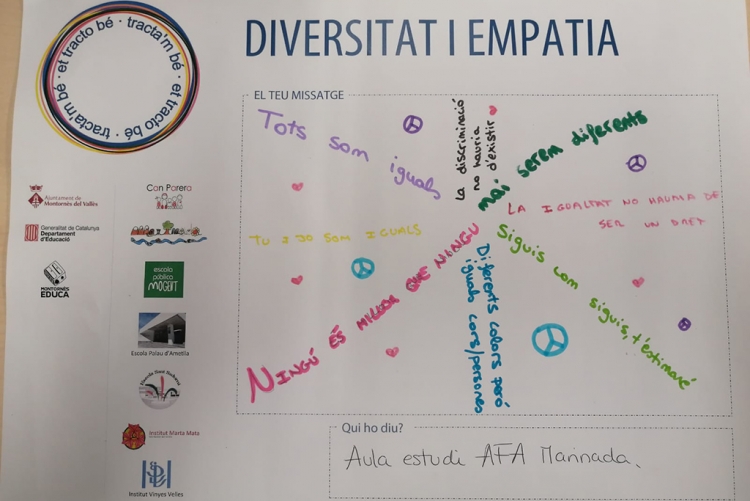 et tracto bé · tracta'm bé · et tracto bé · tracta'm bé ·
DIVERSITAT I EMPATIA
EL TEU MISSATGE
Tots som iguals
La discriminació
no hauria
d'existir
mai serem diferents
LA IGUALTAT NO HAURIA DE
SER UN DRET
TU I JO SOM IGUALS
NINGÚ ÉS MILLOR QUE NINGÚ
Diferents colors però
iguals cors/persones
Siguis com siguis, t'estimaré
Qui ho diu?
Aula estudi AFA Marinada.
Ajuntament de
Montornès del Vallès
Generalitat de Catalunya
Departament
d'Educació
MONTORNÈS
EDUCA
Can Parera
escola
pública
MOGENT
Escola Palau d'Ametlla
Institut Marta Mata
Institut Vinyes Velles